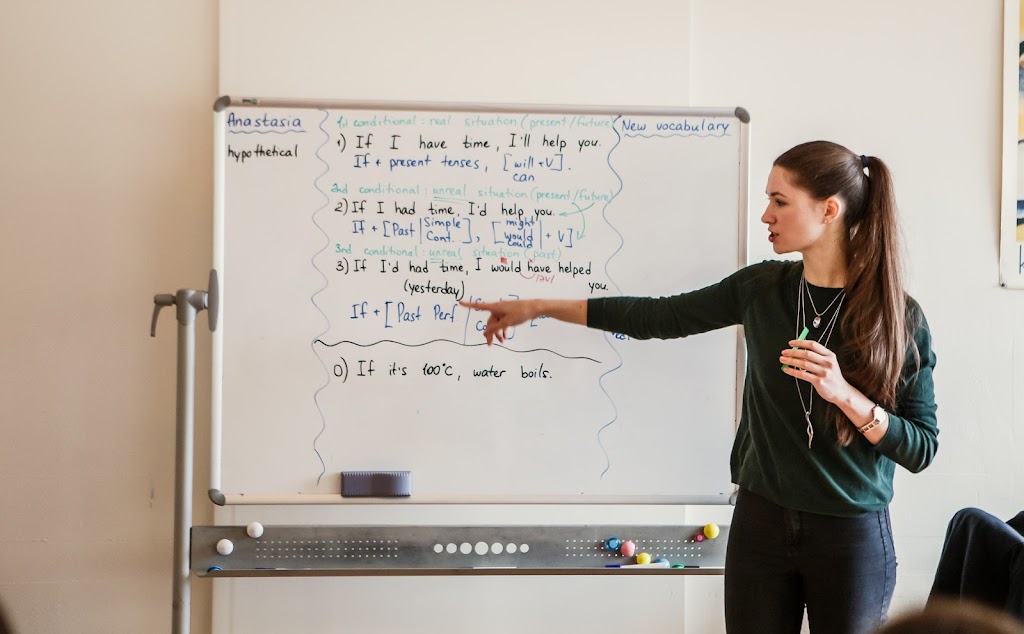 Anastasia
hypothetical
1st conditional: real situation (present/future
1) If I have time, I'll help you.
If + present tenses, [will + V].
can
2nd conditional: unreal situation (present/future)
2) If I had time, I'd help you.
If + [Past | Simple
Cont. ], [ might
would
could | + V]
3rd conditional: unreal situation (past)
3) If I'd had time, I would have helped
(yesterday) you.
If + [Past Perf
0) If it's 100°C, water boils.
New vocabulary